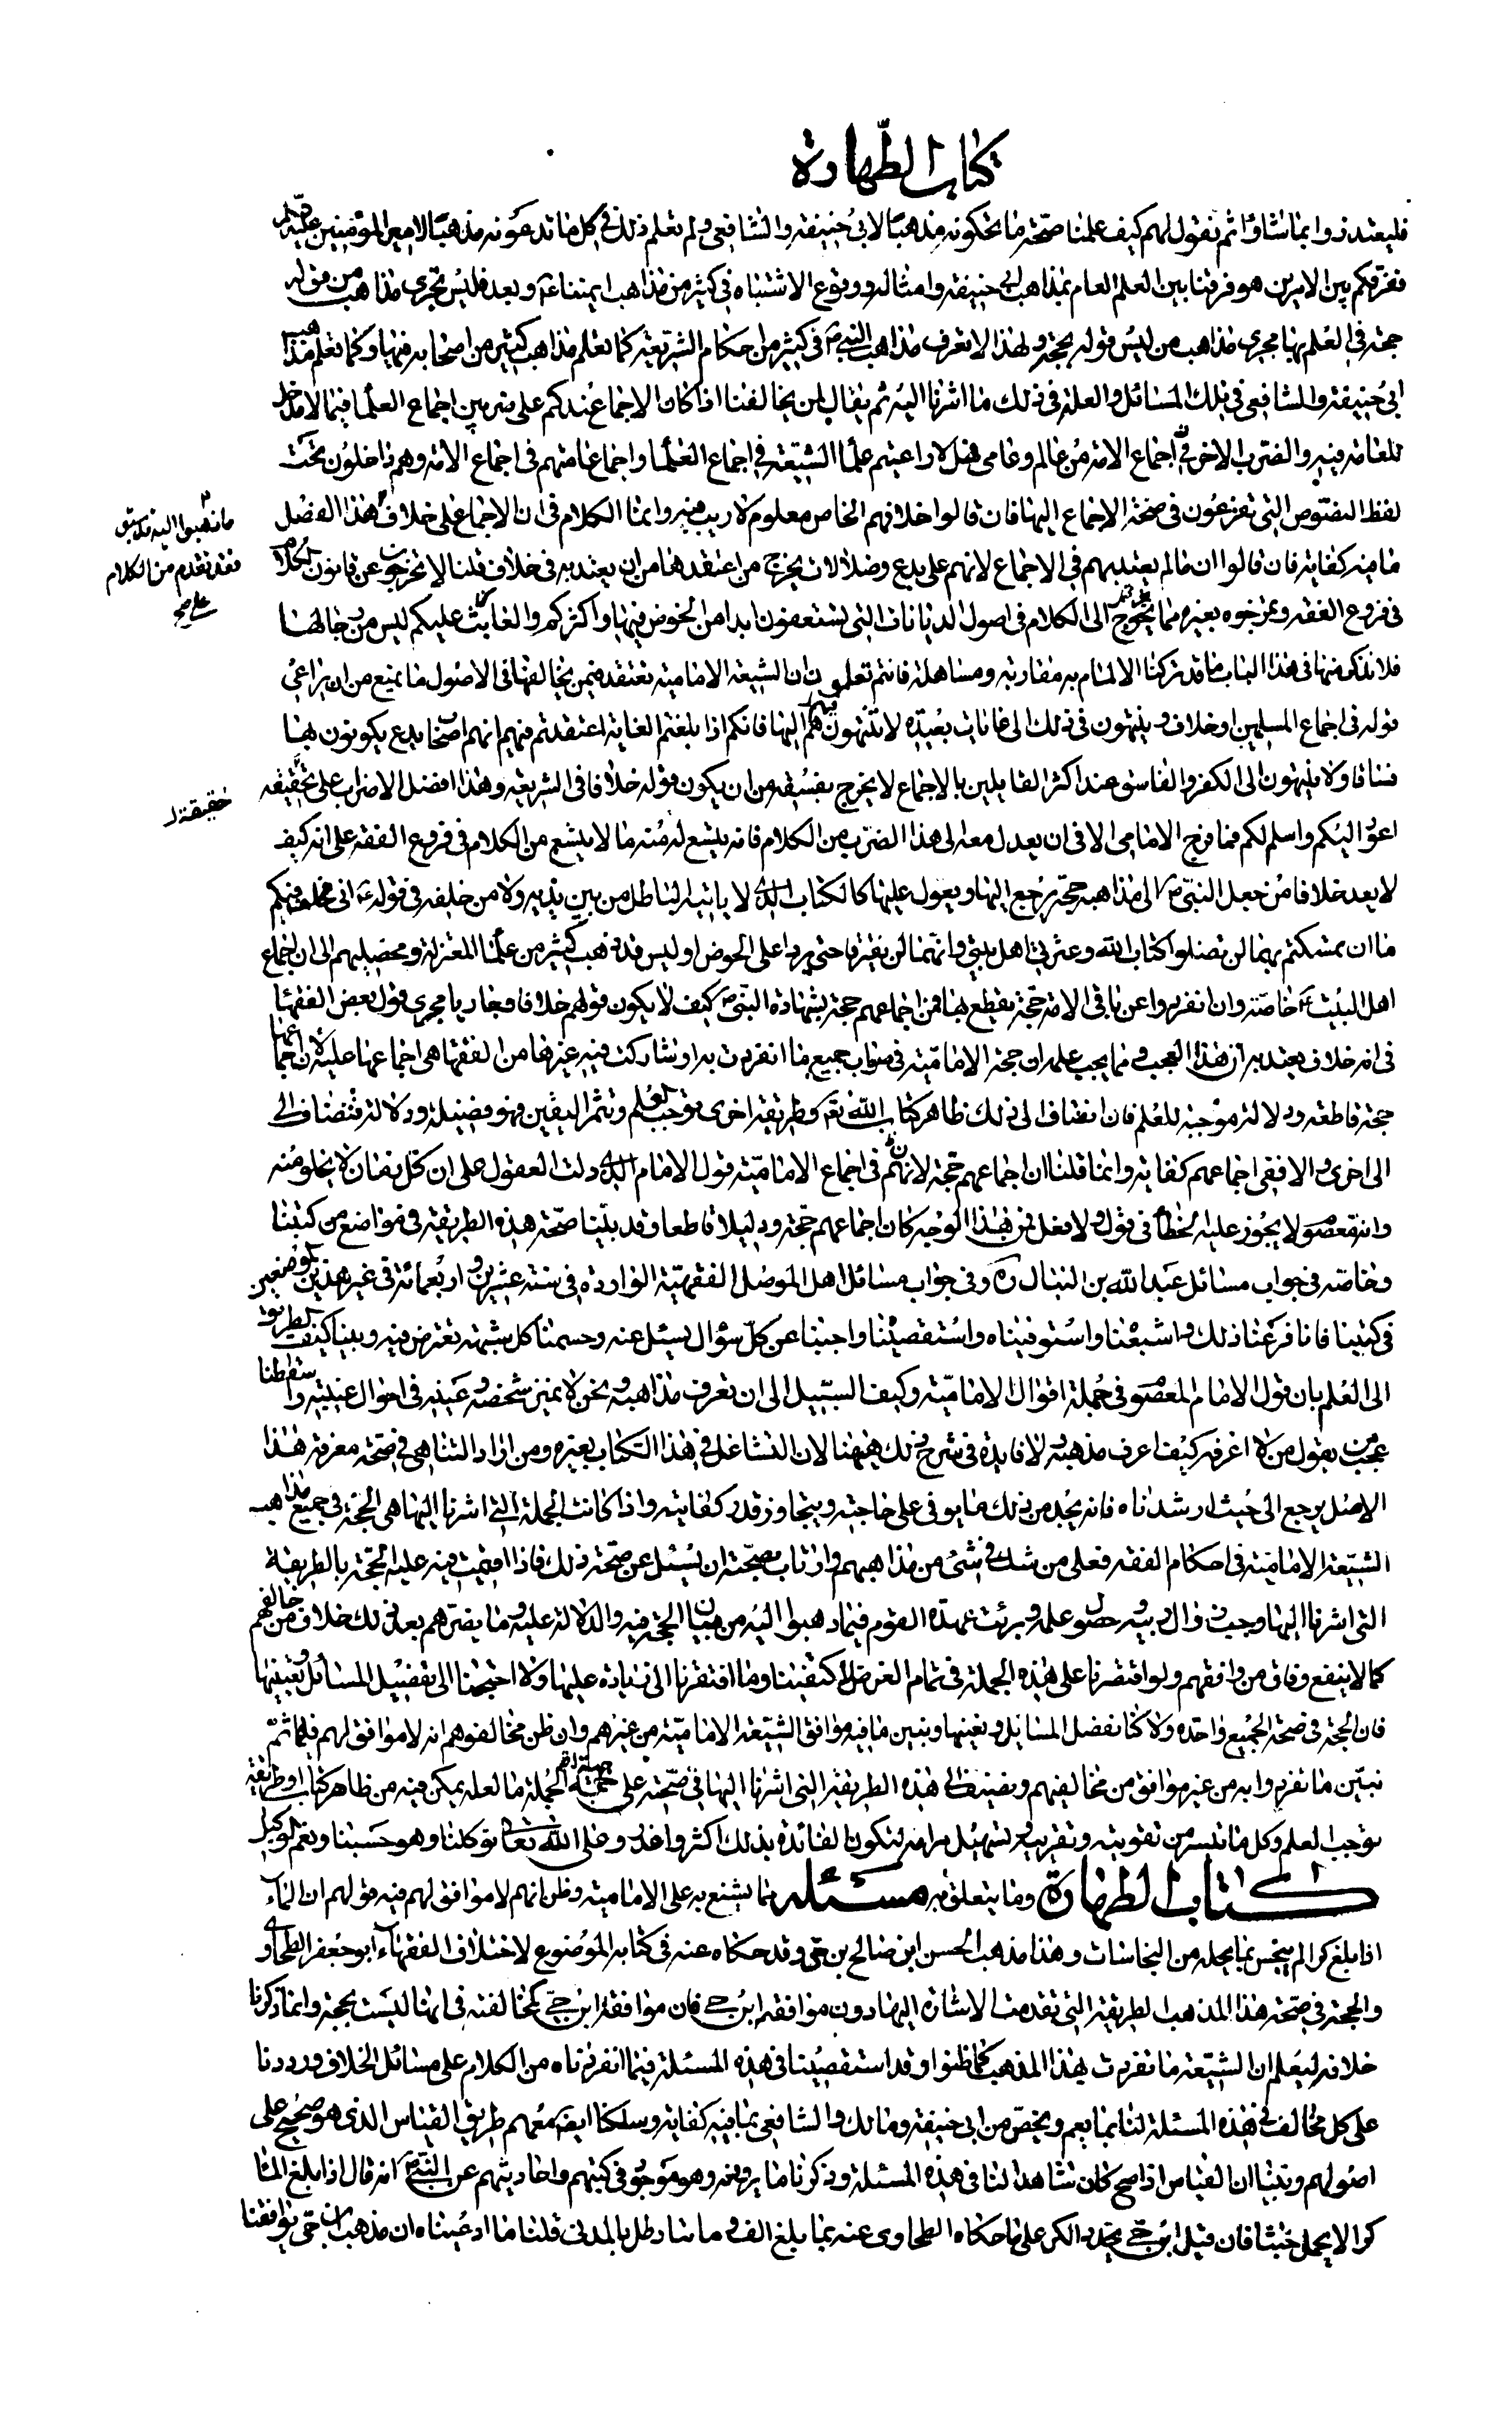 كتاب الطهارة
فليعتذروا بما شاؤا ثم نقول لهم كيف علمنا صحة ما تحكونه مذهبا لابى حنيفة والشافعى ولم نعلم ذلك فى كل ما تدعونه مذهبا لامير المؤمنين عليه السلم
ففرقكم بين الامرين هو فرقنا بين العلم العام بمذاهب ابى حنيفة وامثاله ووقوع الاشتباه فى كثير من مذاهب ائمتنا ع وبعد فليس تجرى مذاهب من قوله
حجة فى العلم بها مجرى مذاهب من ليس قوله بحجة ولهذا لا نعرف مذاهب النبى ص فى كثير من احكام الشريعة كما نعلم مذاهب كثير من اصحابه فيها وكما نعلم مذاهب
ابى حنيفة والشافعى فى تلك المسائل والعلة فى ذلك ما اشرنا اليه ثم يقال لمن يخالفنا اذا كان الاجماع عندكم على ضربين اجماع العلما فيما لا مدخل
للعامة فيه والضرب الاخر اجماع الامة من عالم وعامى فهلا راعيتم علما الشيعة فى اجماع العلما واجماع عامتهم فى اجماع الامة وهم داخلون تحت
لفظ النصوص التى تفزعون فى صحة الاجماع اليها فان قالوا خلافهم الخاص معلوم لا ريب فيه وانما الكلام فى ان الاجماع على خلاف هذا الفصل
ما ذهبوا اليه قد سبق
فقد تقدم من الكلام
على صح
ما فيه كفاية فان قالوا ان ما لم يعتد بهم فى الاجماع لانهم على بدع وضلالات يخرج من اعتقدها من ان يعتد به فى خلاف قلنا لا تخرجون عن قانون الكلام
فى فروع الفقه وتمزجوه بغيره مما يحوج الى الكلام فى اصول الديانات التى تستعفون ابدا من الخوض فيها واكثركم والغائب عليكم ليس من رجالها
فلا نذكر منها فى هذا الباب ما قد تركنا الالمام به مقاربة ومساهلة فانتم تعلمون ان الشيعة الامامية تعتقد فيمن يخالفها فى الاصول ما يمنع من ان يراعى
قوله فى اجماع المسلمين او خلاف وينتهون فى ذلك الى غايات بعيدة لا تنتهون انتم فيهم اليها فانكم اذا بلغتم الغاية اعتقدتم فيهم انهم اصحاب بدع يكونون بها
فساقا ولا ينتهون الى الكفر والفاسق عند اكثر القايلين بالاجماع لا يخرج بفسقه من ان يكون قوله خلافا فى الشريعة وهذا افضل الاضراب على تحقيقه
حقيقته
اعود اليكم واسلم لكم فما فرج الامامى الا فى ان يعدل معه الى هذا الضرب من الكلام فانه يتسع له منه ما لا يتسع من الكلام فى فروع الفقه على انه كيف
لا يعد خلافا من جعل النبى ص الى مذاهبه حجة يرجع اليها ويعول عليها كالكتاب الذى لا ياتيه الباطل من بين يديه ولا من خلفه فى قوله ع انى مخلف فيكم
ما ان تمسكتم بهما لن تضلوا كتاب الله وعترتى اهل بيتى وانهما لن يفترقا حتى يردا على الحوض اوليس قد ذهب كثير من علما المعتزلة ومحصليهم الى ان اجماع
اهل البيت ع خاصة وان انفردوا عن باقى الامة حجة يقطع بها فمن اجماعهم حجة بشهادة النبى ص كيف لا يكون قولهم خلافا وجاريا مجرى قول بعض الفقها
فى انه خلاف يعتد به ان هذا العجب ومما يجب علمه ان حجة الامامية فى صواب جميع ما انفردت به او شاركت فيه غيرها من الفقها هى اجماعها عليه لان اجماعها
حجة قاطعة ودلالة موجبة للعلم فان انضاف الى ذلك ظاهر كتاب الله تع وطريقة اخرى توجب العلم وتثمر اليقين فهو فضيلة ودلالة تنضاف الى
الى اخرى والا ففى اجماعهم كفاية وانما قلنا ان اجماعهم حجة لان فى اجماع الامامية قول الامام الذى دلت العقول على ان كل زمان لا يخلو منه
وانه معصوم لا يجوز عليه الخطأ فى قول ولا فعل فمن هذا الوجه كان اجماعهم حجة ودليلا قاطعا وقد بينا صحة هذه الطريقة فى مواضع من كتبنا
وخاصة فى جواب مسائل عبد الله بن التبان ره وفى جواب مسائل اهل الموصل الفقهية الواردة فى سنة عشرين واربعمائة وفى غير هذين الموضعين
فى كتبنا فانا فرعنا ذلك واشبعناه واستوفيناه واستقصيناه واجبنا عن كل سؤال يسئل عنه وحسمنا كل شبهة تعترض فيه وبينا كيف الطريق
الى العلم بان قول الامام المعصوم فى جملة اقوال الامامية وكيف السبيل الى ان نعرف مذاهبه ونحن لا نميز شخصه وعينه فى احوال غيبته واسقطنا
عجب من يقول من لا اعرفه كيف اعرف مذهبه لا فايدة فى شرح ذلك هيهنا لان التشاغل فى هذا الكتاب بغيره ومن اراد التناهى فى صحة معرفة هذا
الاصل يرجع الى حيث ارشدناه فانه يجد من ذلك ما يوفى على حاجته ويتجاوز قدر كفايته واذا كانت الجملة التى اشرنا اليها هى الحجة فى جميع مذاهب
الشيعة الامامية فى احكام الفقه فعلى من شك فى شئ من مذاهبهم وارتاب بصحته ان يسئل عن صحة ذلك فاذا اقيمت فيه عليه الحجة بالطريقة
التى اشرنا اليها وجب زوال ريبه وحصول علمه وبرئت عهدة القوم فيما ذهبوا اليه من بيان الحجة فيه والدلالة عليه وما يضرهم بعد ذلك خلاف من خالفهم
كما لا ينفع وفاق من وافقهم ولو اقتصرنا على هذه الجملة فى تمام الغرض لاكتفينا وما افتقرنا الى زيادة عليها ولا احتجنا الى تفصيل المسائل وتعيينها
فان الحجة فى صحة الجميع واحدة ولاكنا نفصل المسايل ونعينها ونبين ما فيه موافق الشيعة الامامية من غيرهم وان ظن مخالفوهم انه لا موافق لهم فيه ثم
نبين ما تفردوا به من غير موافق من مخالفيهم ونضيف الى هذه الطريقة التى اشرنا اليها فى صحته على الجملة ما لعله يمكن فيه من ظاهر كتاب او طريقة
توجب العلم وكل ما تيسر من تقويته وتقريبه وتسهيل مرامه لتكون الفائدة بذلك اكثر واغزر وعلى الله تعالى توكلنا وهو حسبنا ونعم الوكيل
كتاب الطهارة وما يتعلق به مسئله مما يشنع به على الامامية وظن انهم لا موافق لهم فيه قولهم ان الماء
اذا بلغ كرا لم ينجس بما يحله من النجاسات وهذا مذهب الحسن ابن صالح بن حى وقد حكاه عنه فى كتابه الموضوع لاختلاف الفقهاء ابو جعفر الطحاوى
والحجة فى صحة هذا المذهب الطريقة التى تقدمت الاشارة اليها دون موافقة ابن حى فان موافقة ابن حى كمخالفته فى انها ليست بحجة وانما ذكرنا
خلافه ليعلم ان الشيعة ما تفردت بهذا المذهب كما ظنوا وقد استقصينا فى هذه المسئلة فيما افردناه من الكلام على مسائل الخلاف ورددنا
على كل مخالف فى هذه المسئلة لنا بما يعم ويخص من ابى حنيفة ومالك والشافعى بما فيه كفاية وسلكنا ايضا معهم طريق القياس الذى هو صحيح على
اصولهم وبينا ان القياس اذا صح كان شاهدا لنا فى هذه المسئلة وذكرنا ما يروونه وهو موجود فى كتبهم واحاديثهم عن النبى ص انه قال اذا بلغ الماء
كرا لا يحمل خبثا فان قيل ابن حى يحد الكر على ما حكاه الطحاوى عنه بما بلغ الف وماتا رطل بالمدنى قلنا ما ادعيناه ان مذهب ابن حى يوافقنا